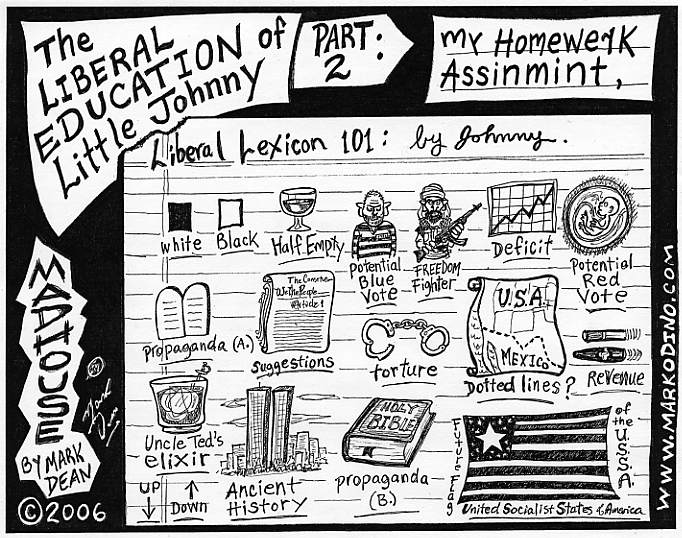 The
LIBERAL
EDUCATION of
Little Johnny
PART:
2
my Homewerk
Assinmint,
Liberal Lexicon 101: by Johnny.
white
Black
Half Empty
Potential
Blue
Vote
FREEDOM
Fighter
Deficit
Potential
Red
Vote
propaganda (A.)
We the People
Article 1
suggestions
torture
U.S.A.
MEXICO
Dotted lines?
Revenue
Uncle Ted's
elixir
UP
Down
Ancient
History
HOLY
BIBLE
propaganda
(B.)
Future Flag
of the U.S.S.A.
United Socialist States of America
MADHOUSE
BY MARK
DEAN
© 2006
WWW.MARKODINO.COM